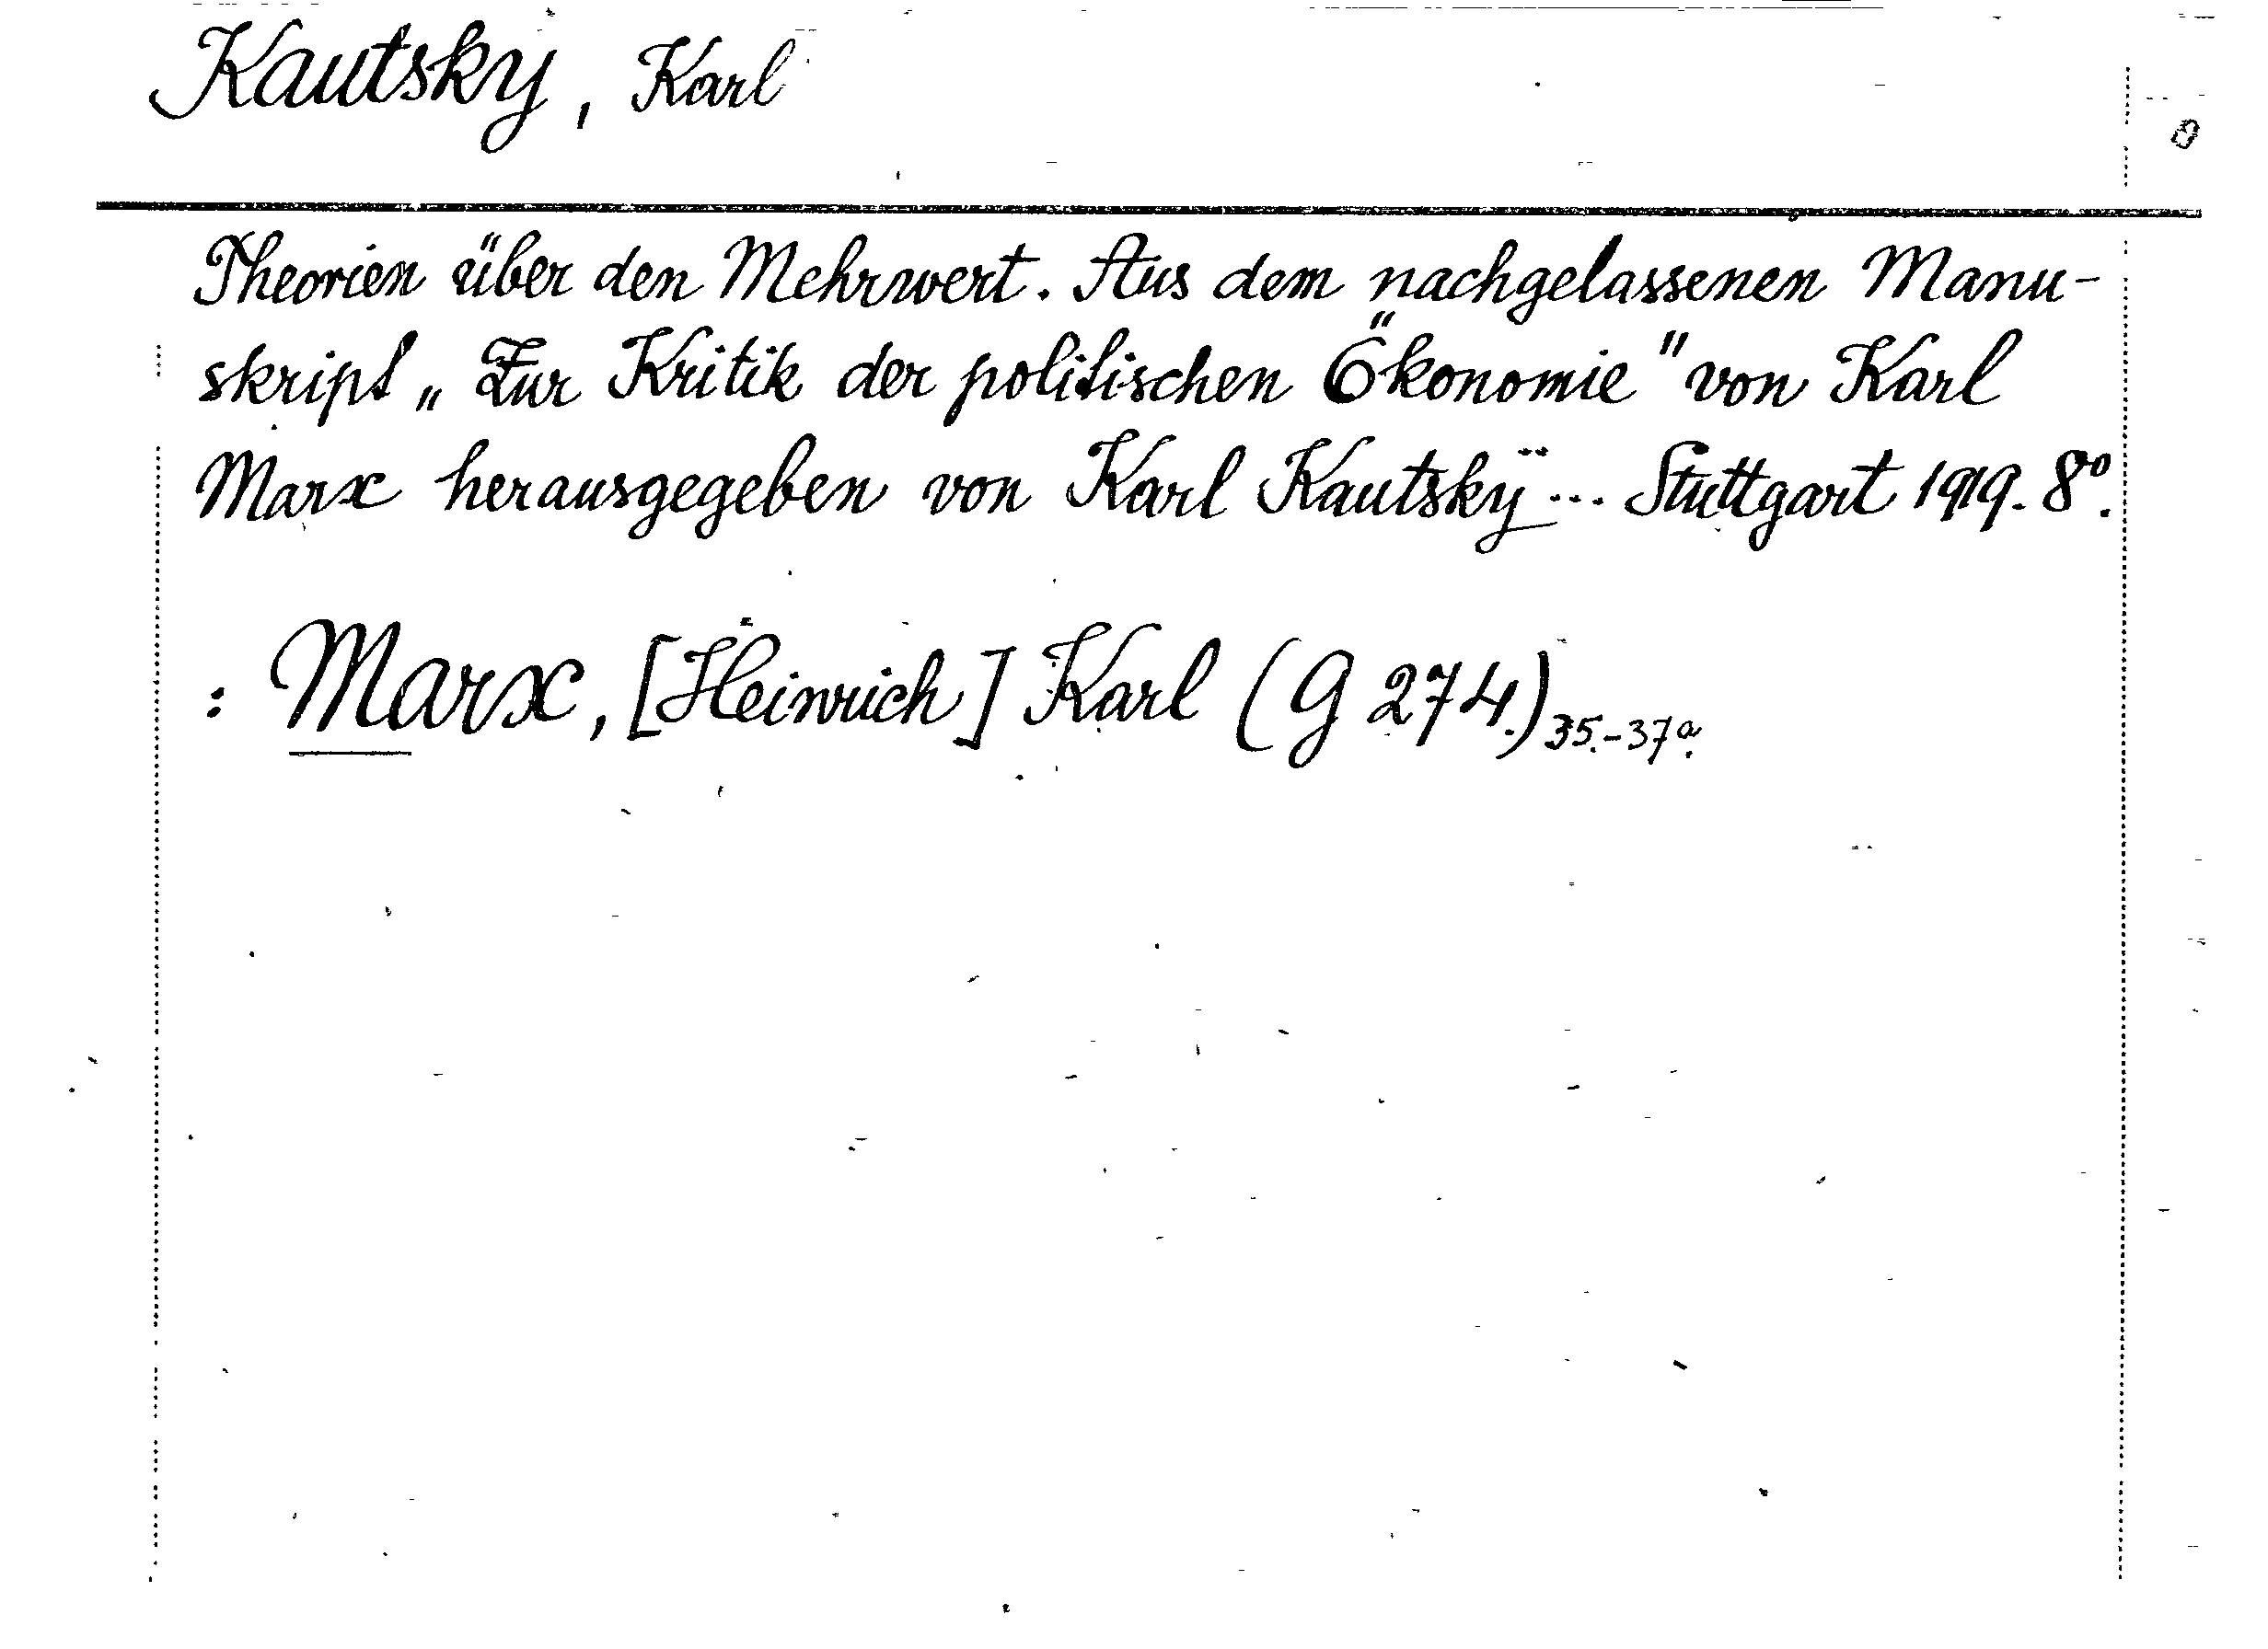 Kautsky, Karl
Theorien über den Mehrwert. Aus dem nachgelassenen Manu-
skript „Zur Kritik der politischen Ökonomie" von Karl
Marx herausgegeben von Karl Kautsky ... Stuttgart 1919. 8º.
: Marx, [Heinrich] Karl (G 274.) 35.-37ª.